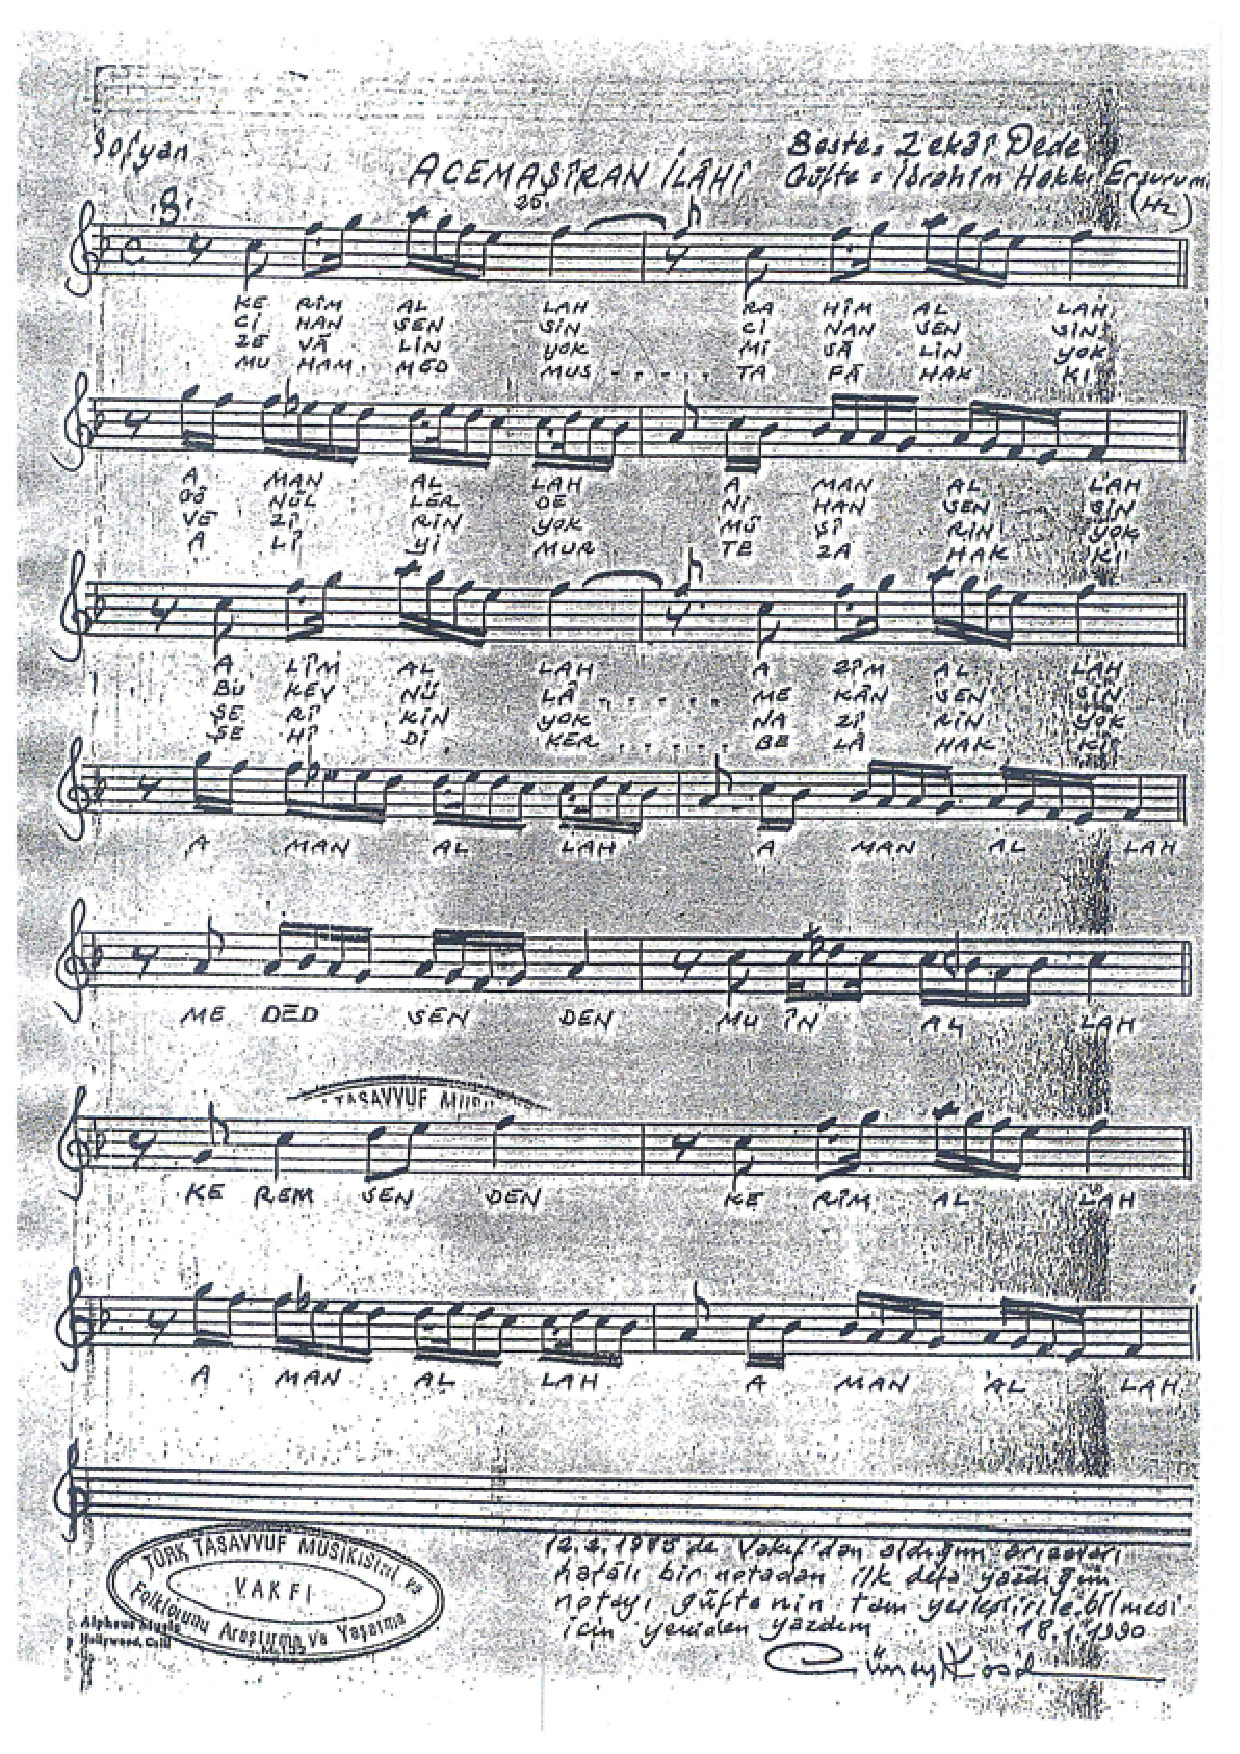 Sofyan
Beste: Zekâi Dede
ACEMAŞİRAN İLÂHİ
Güfte: İbrahim Hakkı Erzurum
(Hz)
KE RİM AL LAH RA HİM AL LAH
CI HAN SEN SİN CI NAN SEN SİN
ZE VÂ LİN YOK Mİ SÂ LİN YOK
MU HAM MED MUS . . . . . TA FÂ HAK KI
A MAN AL LAH A MAN AL LAH
GÖ NÜL LER DE NI HAN SEN SİN
VE Zİ RİN YOK MÜ Şİ RİN YOK
A Lİ Yİ MUR TE ZA HAK KI
A LİM AL LAH A ZİM AL LAH
BU KEV NÜ LÂ . . . . . ME KÂN SEN SİN
ŞE Rİ KİN YOK NA Zİ RİN YOK
ŞE Hİ Dİ KER . . . . . BE LÂ HAK KI
A MAN AL LAH A MAN AL LAH
ME DED SEN DEN MU İN AL LAH
TASAVVUF
KE REM SEN DEN KE RİM AL LAH
A MAN AL LAH A MAN AL LAH
TÜRK TASAVVUF MUSİKİSİNİ ve
VAKFI
Folklorunu Araştırma ve Yaşatma
Alpheus Music
Hollywood, Calif
Vakıf'dan aldığım
hatalı bir notadan ilk defa yazdığım
notayı güfte nin tam yerleştirilebilmesi
için yeniden yazdım 18.1.1990